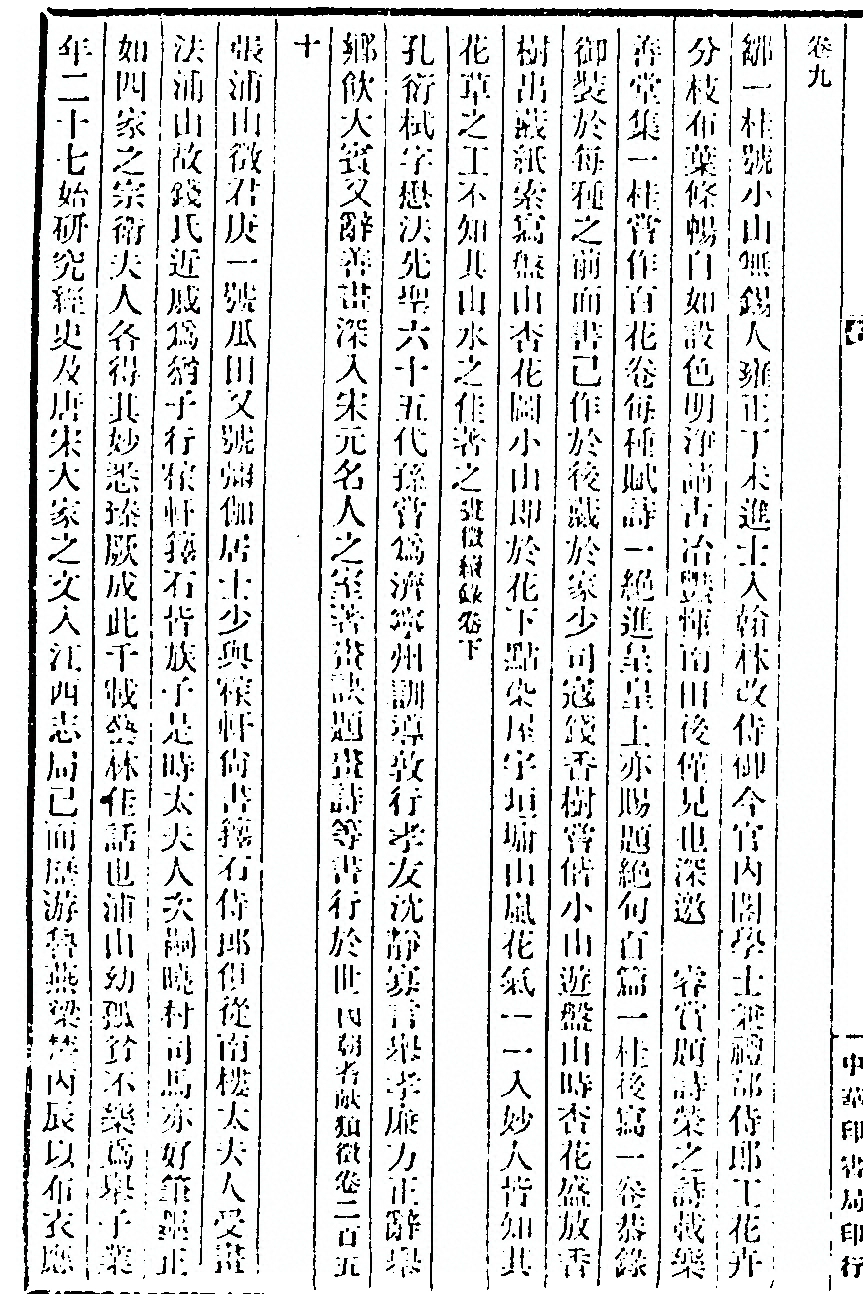 卷九
鄒一桂號小山無錫人雍正丁未進士入翰林改侍御今官內閣學士兼禮部侍郎工花卉
分枝布葉條暢自如設色明淨清古冶艷惲南田後僅見也深邀　睿賞題詩榮之詩載樂
善堂集一桂嘗作百花卷每種賦詩一絕進呈皇上亦賜題絕句百篇一桂後寫一卷恭錄
御裝於每種之前而書己作於後藏於家少司寇錢香樹嘗偕小山遊盤山時杏花盛放香
樹出藏紙索寫盤山杏花圖小山即於花下點染屋宇垣墉山嵐花氣一一入妙人皆知其
花草之工不知其山水之佳者之畫徵續錄卷下
孔衍栻字懋法先聖六十五代孫嘗為濟寧州訓導敦行孝友沈靜寡言舉孝廉方正辭舉
鄉飲大賓又辭善畫深入宋元名人之室著畫訣題畫詩等書行於世民朝耆獻類徵卷二百五
十
張浦山徵君庚一號瓜田又號彌伽居士少與稼軒尚書籜石侍郎俱從南樓太夫人受畫
法浦山故錢氏近戚為猶子行稼軒籜石皆族子是時太夫人次嗣曉村司馬亦好筆墨正
如四家之宗衛夫人各得其妙悉臻厥成此千載藝林佳話也浦山幼孤貧不樂為舉子業
年二十七始研究經史及唐宋大家之文入江西志局已而歷游魯燕梁楚丙辰以布衣應
中華印書局印行